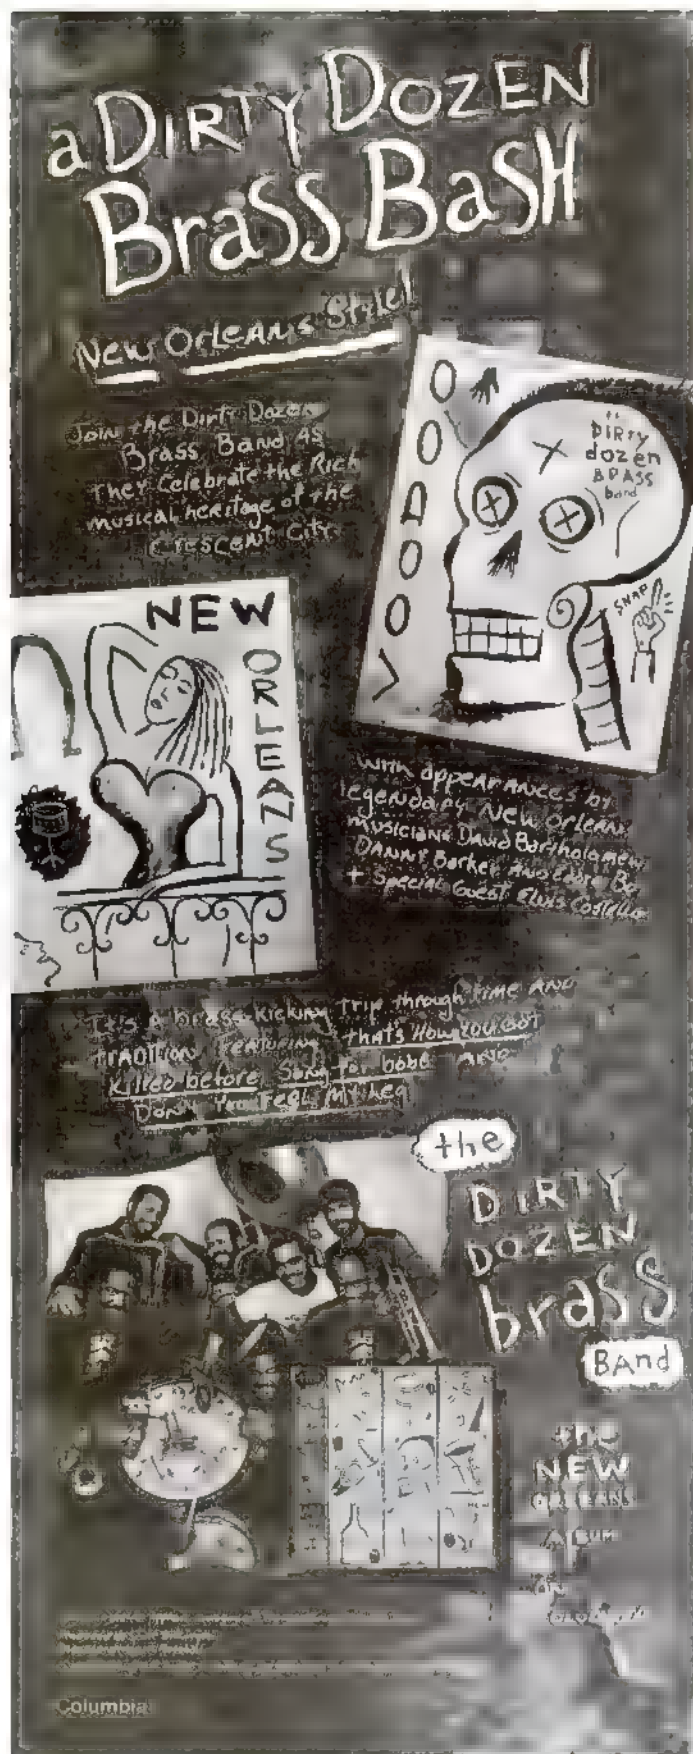 a DIRTY DOZEN
BraSS BaSH
New ORLEANS Style!
Join the Dirty Dozen
Brass Band AS
They Celebrate the Rich
musical heritage of the
Crescent City
VOODOO
the
DIRTY
dozen
BRASS
band
SNAP
NEW
ORLEANS
with appearances by
legendary New Orleans
musicians David Bartholomew,
DANNY Barker AND Eddie Bo
+ Special Guest Elvis Costello
It's A brass-kicking trip through time AND
tradition Featuring that's How You Got
Killed before, Song for bobe AND
Don't You Feel My Leg
the
DIRTY
DOZEN
braSS
BANd
the
NEW
ORLEANS
ALBUM
ON
Columbia